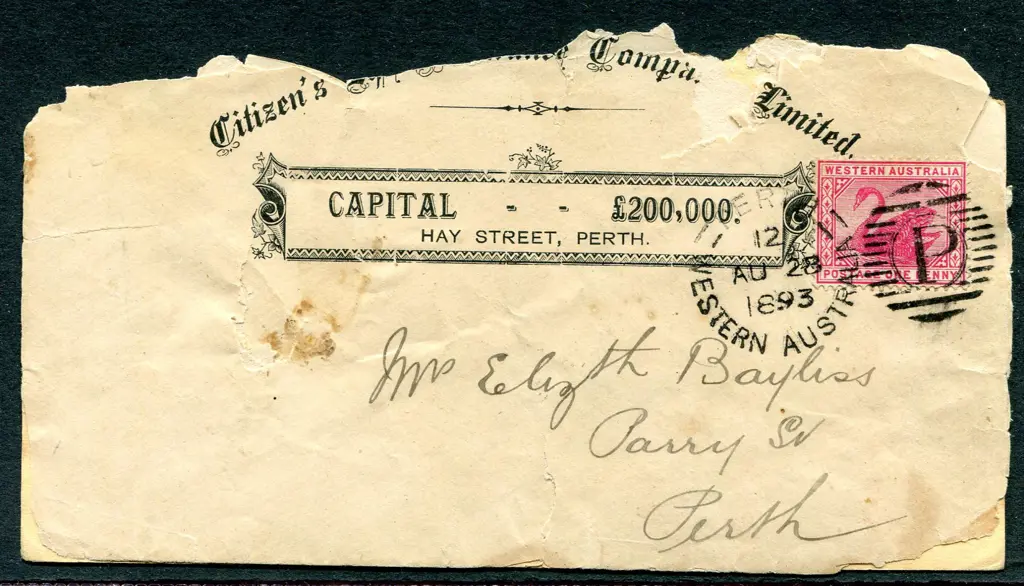 Citizen's Compa Limited.
CAPITAL - - £200,000.
HAY STREET, PERTH.
WESTERN AUSTRALIA
POSTAGE ONE PENNY
P
12
AU 28
1893
WESTERN AUSTRALIA
Mrs Elizth Bayliss
Parry St
Perth